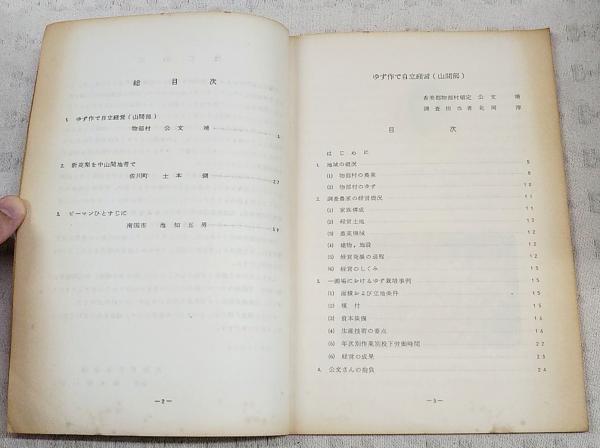 総目次
1. ゆず作で自立経営(山間部)
物部村 公文
2. 新高梨を中山間地帯で
佐川町 土本 27
3. ピーマンひとすじに
南国市 池知五男
—2—
ゆず作で自立経営(山間部)
香美郡物部村頓定 公文
調査担当者 北岡
目次
はじめに
1. 地域の概況 5
(1) 物部村の農業 8
(2) 物部村のゆず 10
2. 調査農家の経営概況 11
(1) 家族構成 11
(2) 経営土地 12
(3) 農業機械 12
(4) 建物,施設 12
(5) 経営発展の過程 12
(6) 経営のしくみ 13
3. 一圃場におけるゆず栽培事例 15
(1) 面積および立地条件 15
(2) 植付 15
(3) 資本装備 16
(4) 生産技術の要点 16
(5) 年次別作業別投下労働時間 22
(6) 経営の成果 23
4. 公文さんの抱負 24
—3—